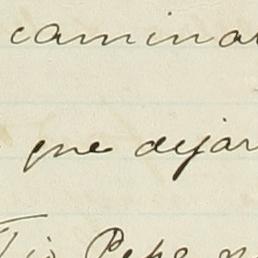 caminar
que dejar
Tio Pepe